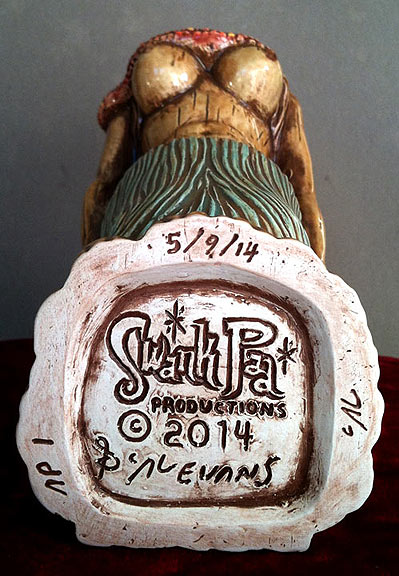 5/9/14
Swank Pad
PRODUCTIONS
© 2014
'AL EVANS
AP 1
'AL